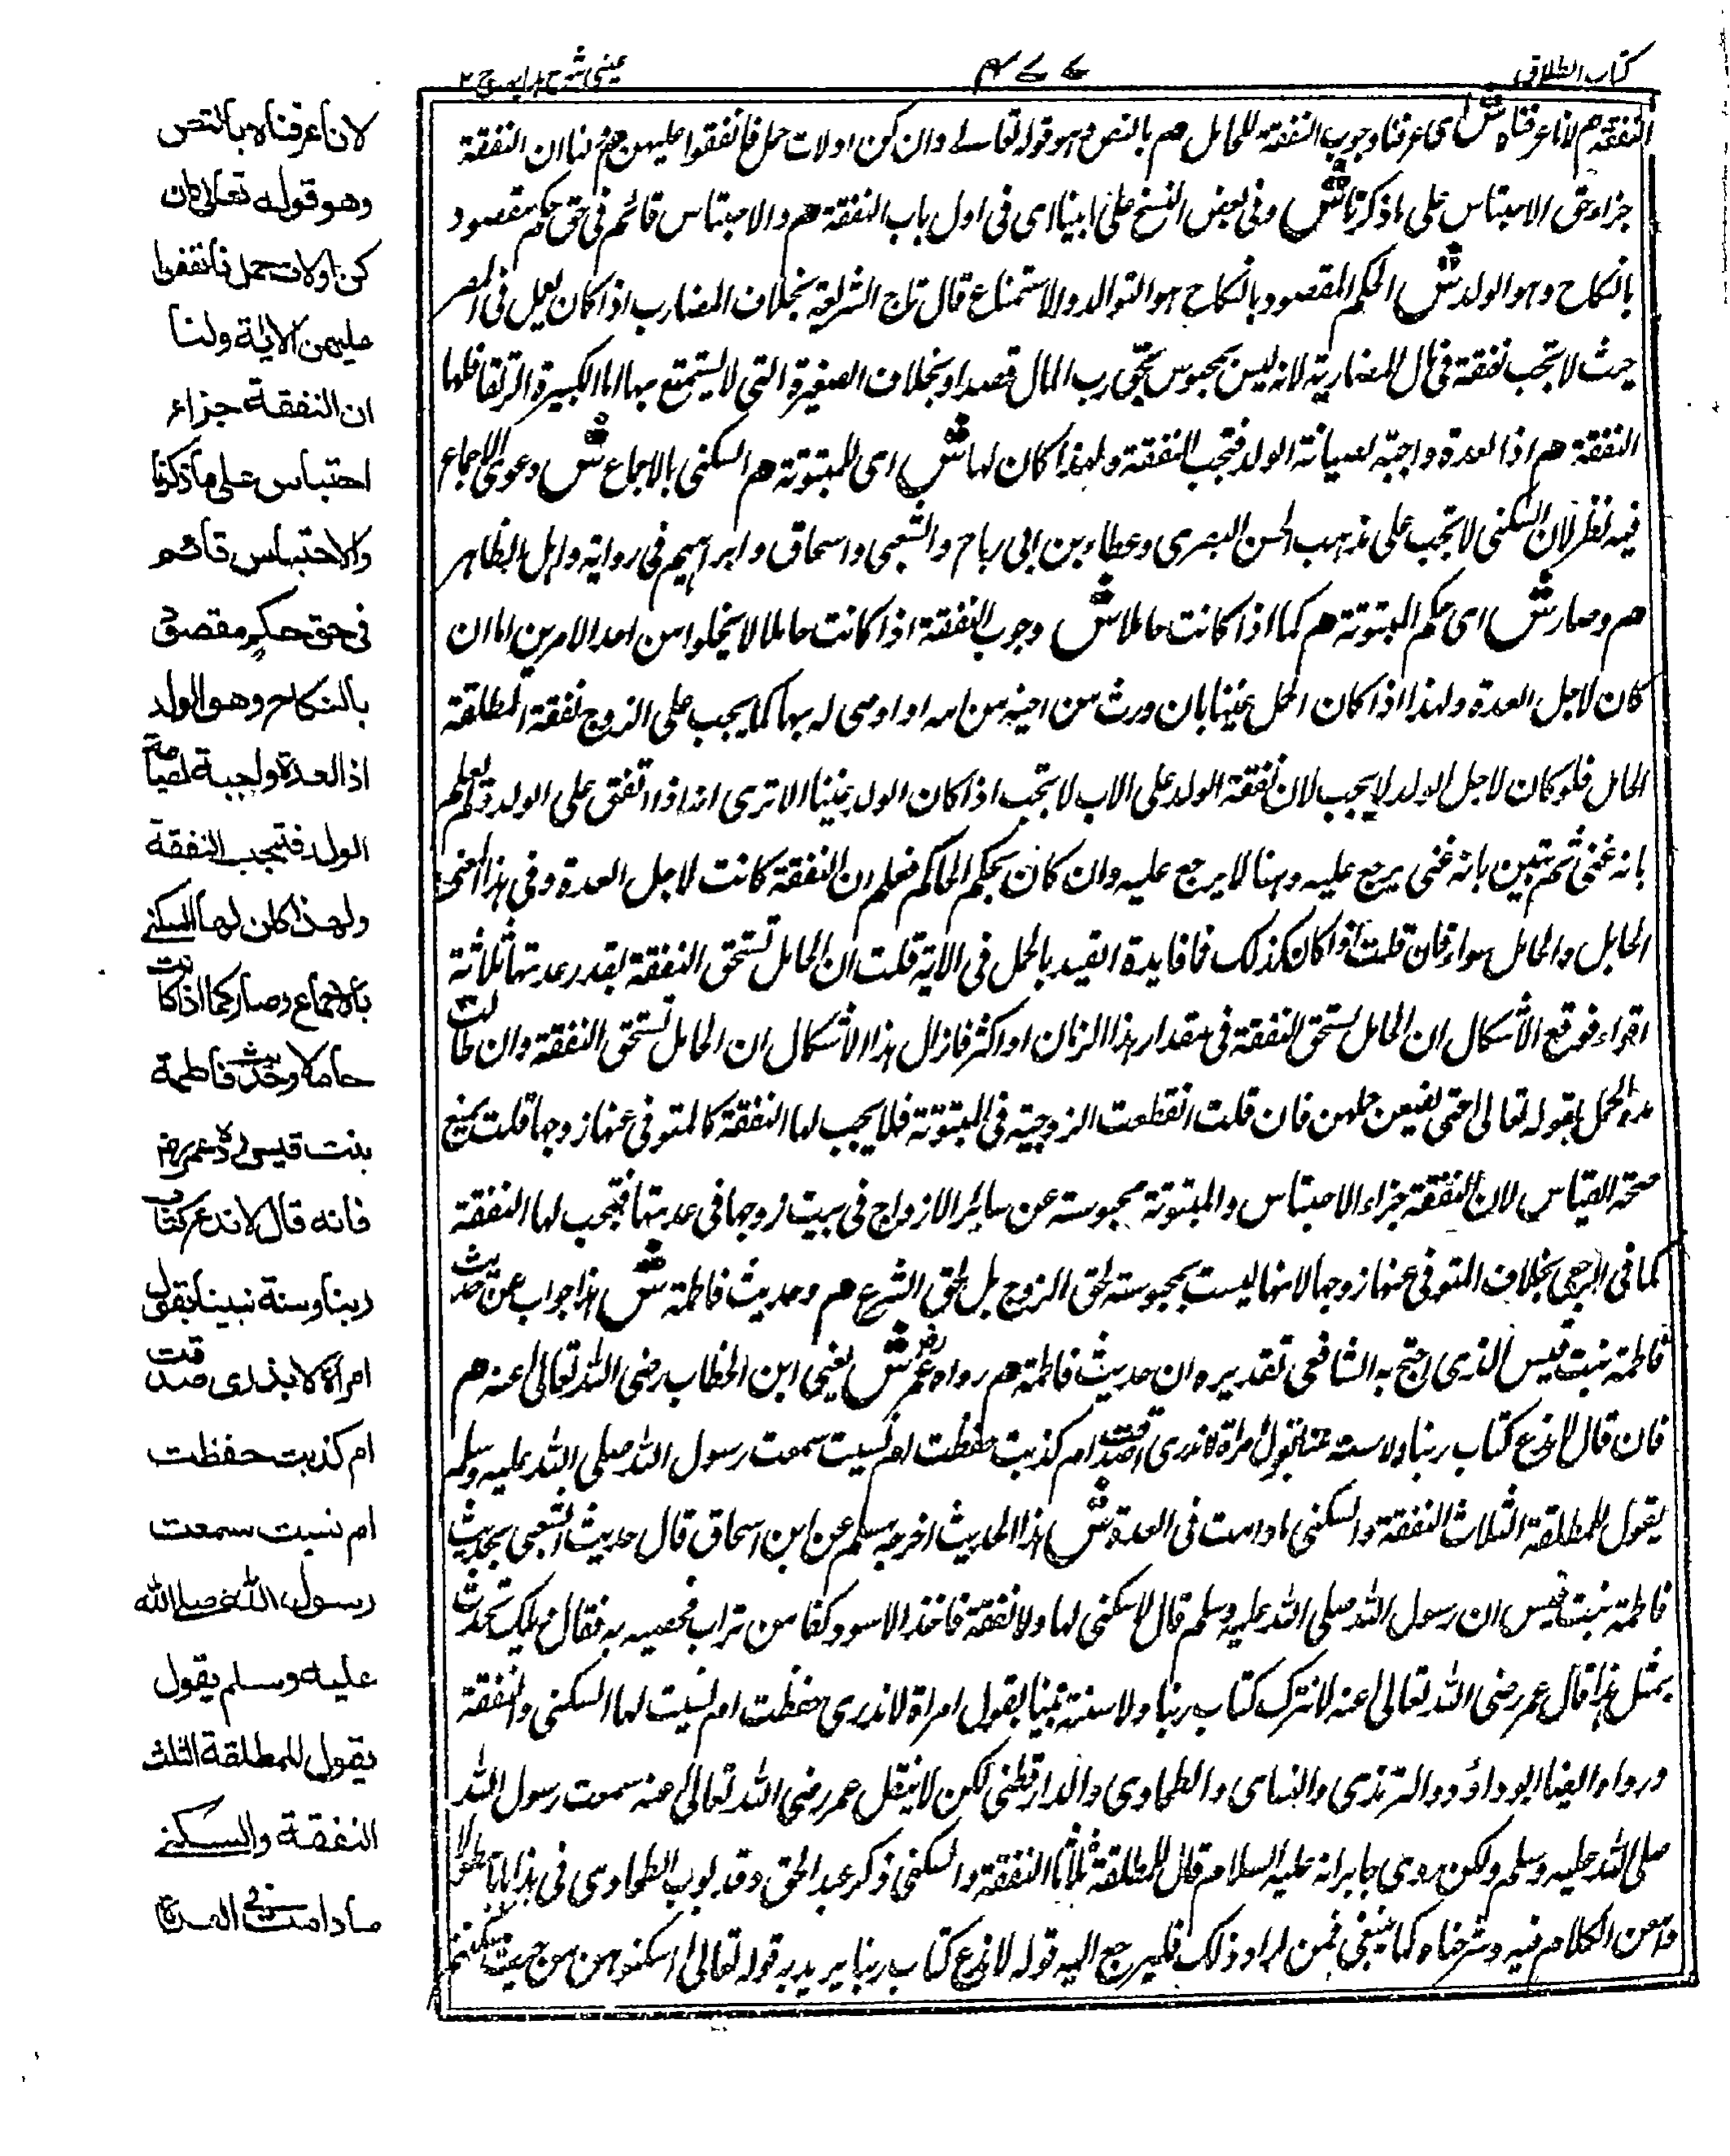 كتاب الطلاق
٤٧٧
عينى شرح هدايه ج ٢
النفقة هم لانا عرفناه ش اى عرفنا وجوب النفقة للحامل هم بالنص وهو قوله تعالى وان كن اولات حمل فانفقوا عليهن هم ولنا ان النفقة
جزاء حق الاحتباس على ما ذكرنا ش وفى بعض النسخ على ما بينا اى فى اول باب النفقة هم والاحتباس قائم فى حق حكم مقصود
بالنكاح وهو الولد ش الحكم المقصود بالنكاح هو التوالد والاستمتاع قال تاج الشريعة بخلاف المضارب اذا كان يعمل فى المصر
حيث لا تجب نفقة فى مال المضاربة لانه ليس بمحبوس بحق رب المال قصدا وبخلاف الصغيرة التى لا يستمتع بها اما الكبيرة الرتقا فلها
النفقة هم اذ العدة واجبة لصيانة الولد فتجب النفقة ولهذا كان لها ش اى للمبتوتة هم السكنى بالاجماع ش دعوى الاجماع
فيه نظر لان السكنى لا تجب على مذهب الحسن البصرى وعطاء بن ابى رباح والشعبى واسحاق وابراهيم فى رواية واهل الظاهر
هم وصار ش اى حكم المبتوتة هم كما اذا كانت حاملا ش وجوب النفقة اذا كانت حاملا لا يخلوا من احد الامرين اما ان
كان لاجل العدة ولهذا اذا كان الحمل غنيا بان ورث من اخيه من امه او اوصى له بها كما يجب على الزوج نفقة المطلقة
الحامل فلو كان لاجل الولد لا يجب لان نفقة الولد على الاب لا تجب اذا كان الولد غنيا الا ترى انه اذا انفق على الولد ولم يعلم
بانه غنى ثم تبين بانه غنى يرجع عليه وهنا لا يرجع عليه وان كان بحكم الحاكم فعلم ان النفقة كانت لاجل العدة وفى هذا المعنى
الحايل والحامل سواء فان قلت اذا كان كذلك فما فايدة القيد بالحمل فى الاية قلت ان الحامل تستحق النفقة بقدر عدتها ثلاثة
اقراء فوقع الاشكال ان الحامل تستحق النفقة فى مقدار هذا الزمان او اكثر فازال هذا الاشكال ان الحامل تستحق النفقة وان طالت
مدة الحمل بقوله تعالى حتى يضعن حملهن فان قلت انقطعت الزوجية فى المبتوتة فلا يجب لها النفقة كالمتوفى عنها زوجها قلت يمنع
صحة القياس لان النفقة جزاء الاحتباس والمبتوتة محبوسة عن سائر الازواج فى بيت زوجها فى عدتها فتجب لها النفقة
كما فى الرجعى بخلاف المتوفى عنها زوجها لانها ليست بمحبوسة لحق الزوج بل لحق الشرع هم وحديث فاطمة ش هذا جواب عن حديث
فاطمة بنت قيس الذى احتج به الشافعى تقديره ان حديث فاطمة هم رواه عمر رض ش يعنى ابن الخطاب رضى الله تعالى عنه هم
فان قال لا ندع كتاب ربنا ولا سنة نبينا بقول امراة لا ندرى اصدقت ام كذبت حفظت ام نسيت سمعت رسول الله صلى الله عليه وسلم
يقول للمطلقة الثلاث النفقة والسكنى ما دامت فى العدة ش هذا الحديث اخرجه مسلم عن ابن اسحاق قال حديث الشعبى بحديث
فاطمة بنت قيس ان رسول الله صلى الله عليه وسلم قال لا سكنى لها ولا نفقة فاخذ الاسود كفا من تراب فحصبه به فقال ويلك تحدث
بمثل هذا قال عمر رضى الله تعالى عنه لا نترك كتاب ربنا ولا سنة نبينا بقول امراة لا ندرى حفظت ام نسيت لها السكنى والنفقة
ورواه ايضا ابو داؤد والترمذى والنساى والطحاوى والدارقطنى لكن لا ينقل عمر رضى الله تعالى عنه سمعت رسول الله
صلى الله عليه وسلم ولكن روى جابر انه عليه السلام قال للمطلقة ثلاثا النفقة والسكنى ذكر عبد الحق وقد بوب الطحاوى فى هذا بابا طولا
وامعن الكلام فيه وشرحناه كما ينبغى فمن اراد ذلك فليرجع اليه قوله لا ندع كتاب ربنا يريد به قوله تعالى اسكنوهن من حيث سكنتم
لانا عرفناه بالنص
وهو قوله تعالى وان
كن اولات حمل فانفقوا
عليهن الاية ولنا
ان النفقة جزاء
احتباس على ما ذكرنا
والاحتباس قائم
فى حق حكم مقصود
بالنكاح وهو الولد
اذ العدة واجبة لصيانة
الولد فتجب النفقة
ولهذا كان لها السكنى
بالاجماع وصار كما اذا كانت
حاملا وحديث فاطمة
بنت قيس رده عمر رض
فانه قال لا ندع كتاب
ربنا وسنة نبينا بقول
امراة لا ندرى صدقت
ام كذبت حفظت
ام نسيت سمعت
رسول الله صلى الله
عليه وسلم يقول
يقول للمطلقة الثلث
النفقة والسكنى
ما دامت فى العدة